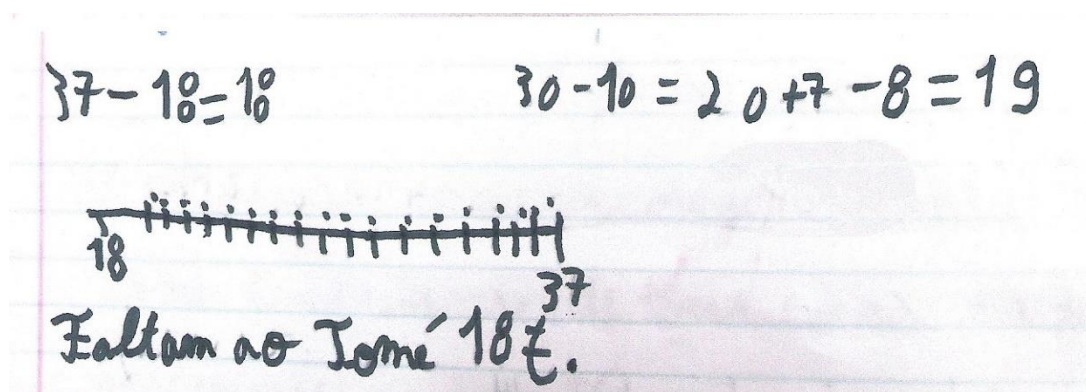 37 - 18 = 18
30 - 10 = 20 + 7 - 8 = 19
18
37
Faltam ao Tomé 18 €.